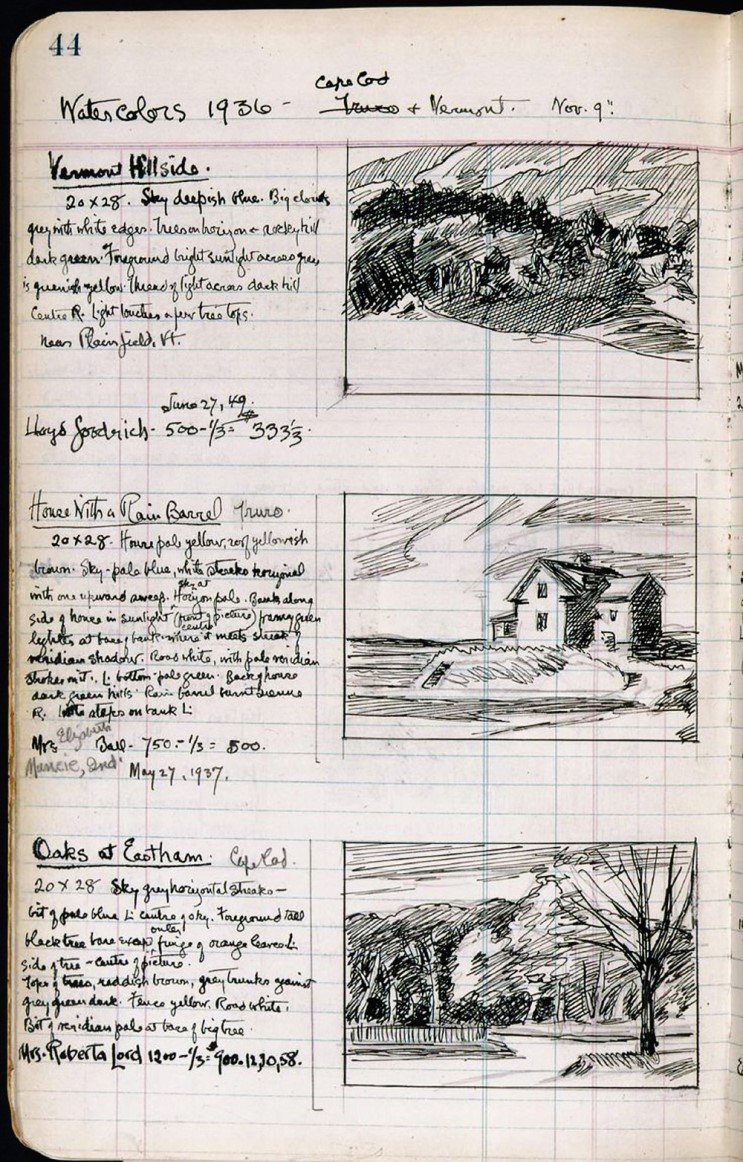 44
Cape Cod
Watercolors 1936 - Truro + Vermont. Nov. 9"
Vermont Hillside.
20 x 28. Sky deepish blue. Big clouds
grey with white edges. Trees on horizon + rocky hill
dark green. Foreground bright sunlight across grass
is greenish yellow. Thread of light across dark hill
Centre R. Light touches a few tree tops.
near Plainfield, Vt.
June 27, 49.
Lloyd Goodrich - 500 - 1/3 = $333 1/3.
House With a Rain Barrel Truro.
20 x 28. House pale yellow, roof yellowish
brown. Sky - pale blue, white streaks horizonal
sky at
with one upward sweep. Horizon pale. Banks along
side of house in sunlight (front picture) green
centre
lightest at base, bank where it meets streak of
veridian shadow. Road white, with pale veridian
strokes in it. L. bottom - pale green. Back of house
dark green hills. Rain barrel burnt sienna
R. steps on bank L.
Mrs Elizabeth Ball - 750. - 1/3 = 500.
Muncie, Ind. May 27, 1937.
Oaks at Eastham. Cape Cod.
20 x 28 Sky grey horizontal streaks -
bit of pale blue L. centre of sky. Foreground tall
outer
black tree bare except fringe of orange leaves L.
side of tree - centre of picture.
Tops of trees, reddish brown, grey trunks against
grey green dark. Fence yellow. Road white.
Bit of veridian pale at base of big tree.
Mrs. Roberta Lord 1200 - 1/3 = $900. 12,30,58.